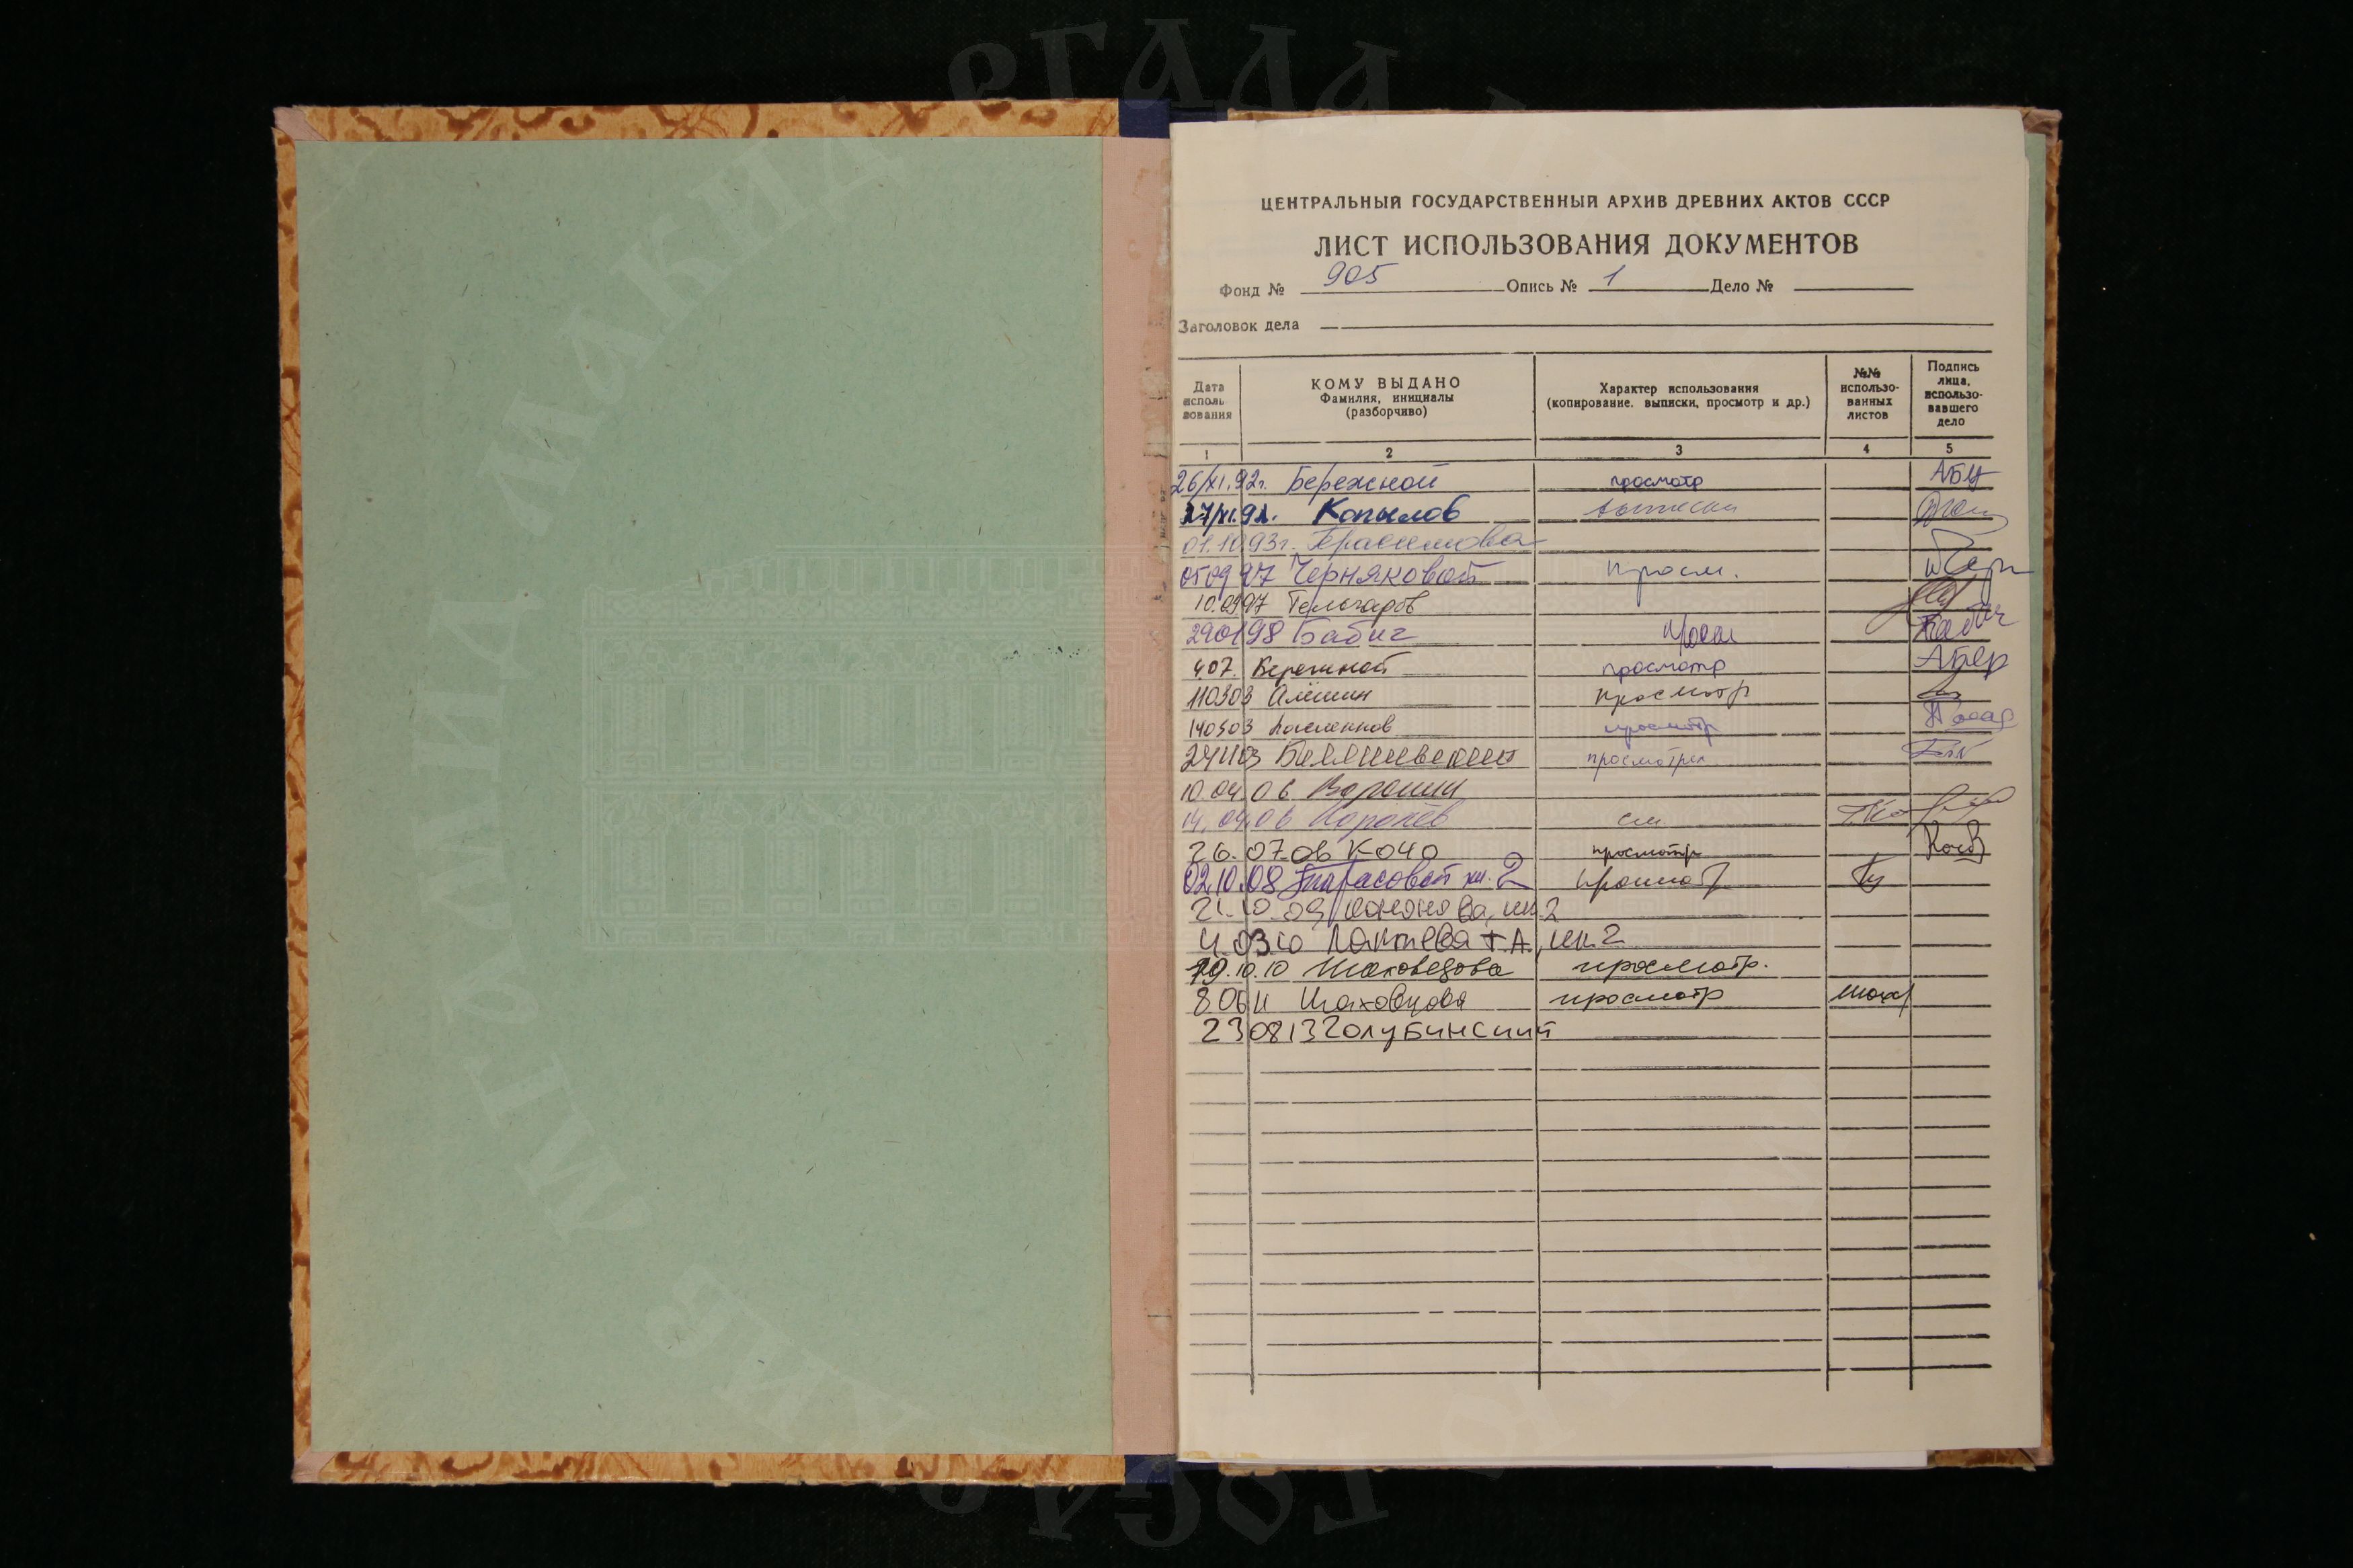 ЦЕНТРАЛЬНЫЙ ГОСУДАРСТВЕННЫЙ АРХИВ ДРЕВНИХ АКТОВ СССР
ЛИСТ ИСПОЛЬЗОВАНИЯ ДОКУМЕНТОВ
Фонд № 905 Опись № 1 Дело №
Заголовок дела
Дата использования
КОМУ ВЫДАНО
Фамилия, инициалы
(разборчиво)
Характер использования
(копирование, выписки, просмотр и др.)
№№
использо-
ванных
листов
Подпись
лица,
использо-
вавшего
дело
1 2 3 4 5
26/XI.92г. Бережной просмотр
27/XI.92. Копылов выписки
01.10 93г. Герасимова
05 09 97 Черняковой просм.
10.09 97 Тельчаров
290198 Бабич
407. Бережной просмотр
110303 Алёшин просмотр
140303 просмотр
241103 просмотрел
10.04.06 Воронин
14.04.06 Королёв см
26.07.06 Кочо просмотр
02.10.08 Тарасовой чз. 2 просмотр
21.10.09
4.03.10 Лаптева Т.А.
19.10.10 Шаховцова просмотр.
8.06 11 Шаховцова просмотр
230813 Голубинский